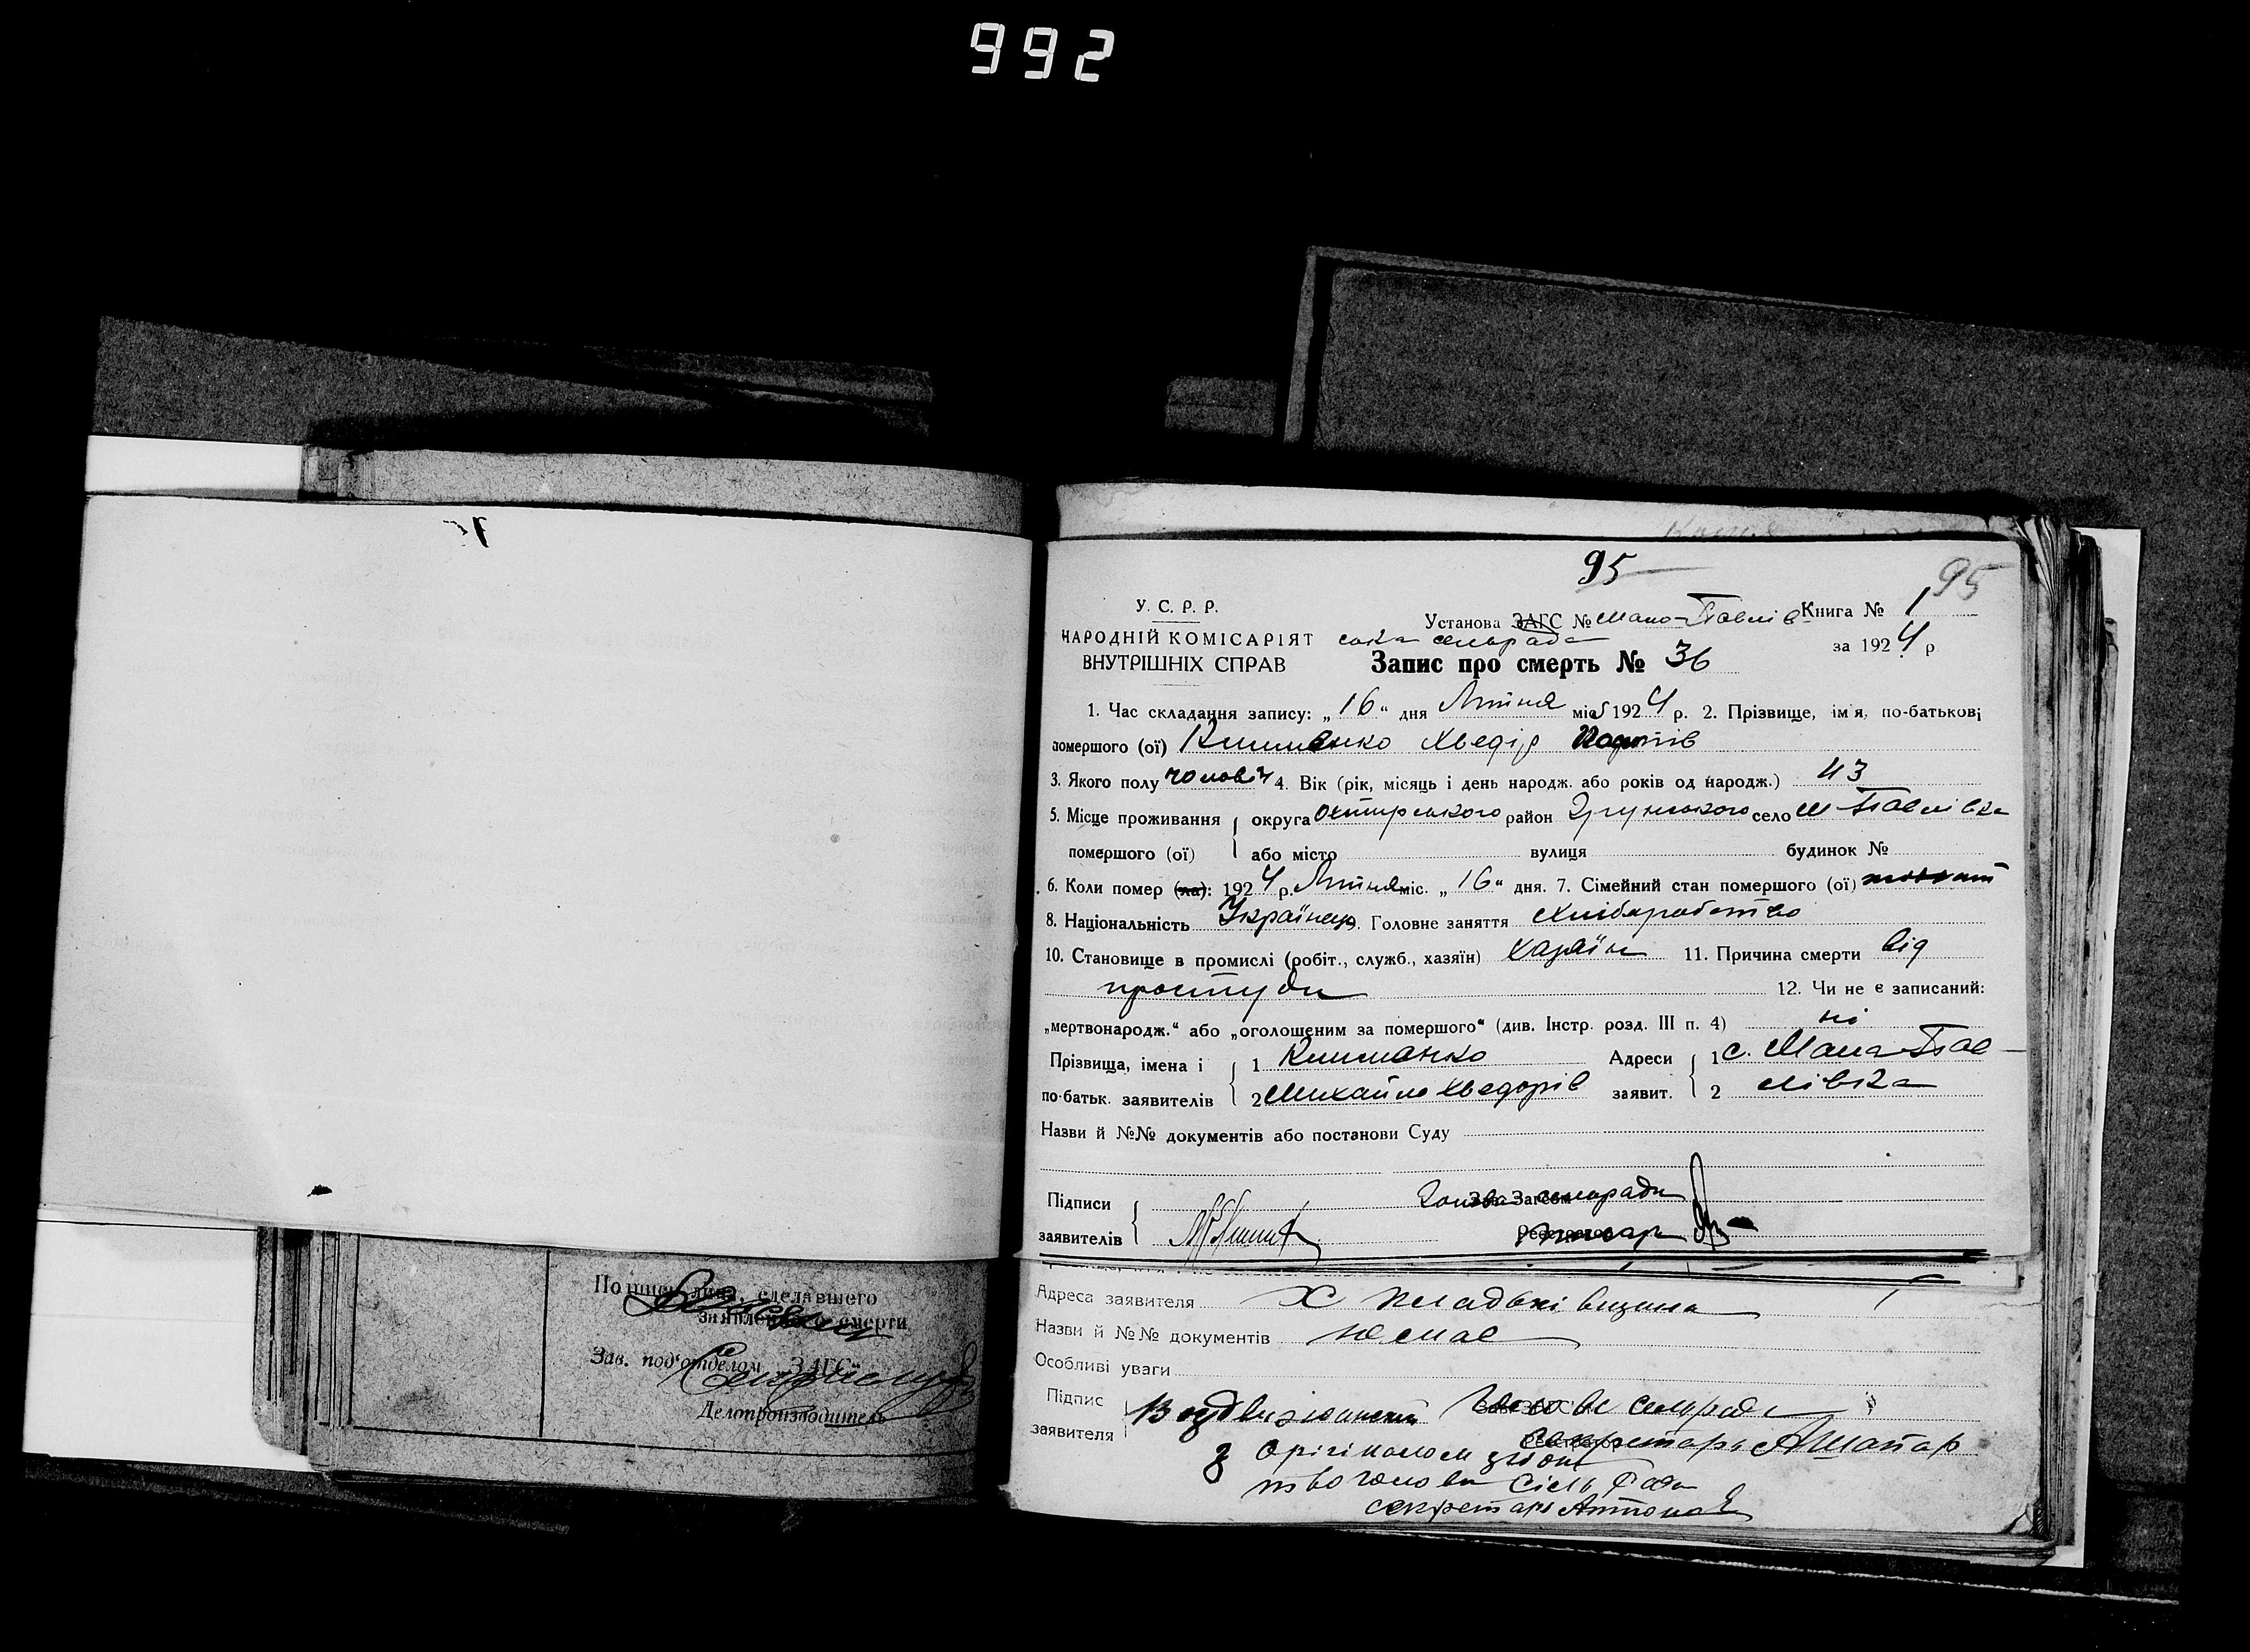 992
95
95
У. С. Р. Р.
НАРОДНІЙ КОМІСАРІЯТ
ВНУТРІШНІХ СПРАВ
Установа ЗАГС № Мало-Павлів
ська сельрада
Книга № 1
за 1924 р
Запис про смерть № 36
1. Час складання запису: „16“ дня Липня міс 1924 р. 2. Прізвище, ім'я, по-батькові
помершого (ої) Клименко Хведір
3. Якого полу чоловіч 4. Вік (рік, місяць і день народж. або років од народж.) 43
5. Місце проживання округа Охтирського район Грунського село М-Павлівка
помершого (ої) або місто вулиця будинок №
6. Коли помер (ла): 1924 р. Липня міс. „16“ дня. 7. Сімейний стан помершого (ої)
8. Національність Українець 9. Головне заняття хліборобство
10. Становище в промислі (робіт., служб., хазяїн) хазяїн 11. Причина смерти від
простуди 12. Чи не є записаний:
„мертвонародж.“ або „оголошеним за помершого“ (див. Інстр. розд. III п. 4) ні
Прізвища, імена і 1 Клименко Адреси 1 с. Мала-Пав-
по-батьк. заявителів 2 Михайло Хведорів заявит. 2 лівка
Назви й №№ документів або постанови Суду
Підписи Голова сельради
заявителів
Адреса заявителя Х
Назви й №№ документів немає
Особливі уваги
Підпис Голова сельради
заявителя секретарь
З орігіналом згідно
голови Сіль Ради
секретарь
Подпись лица, сделавшего
заявление о смерти
Зав. под'отделом „ЗАГС“
Делопроизводитель